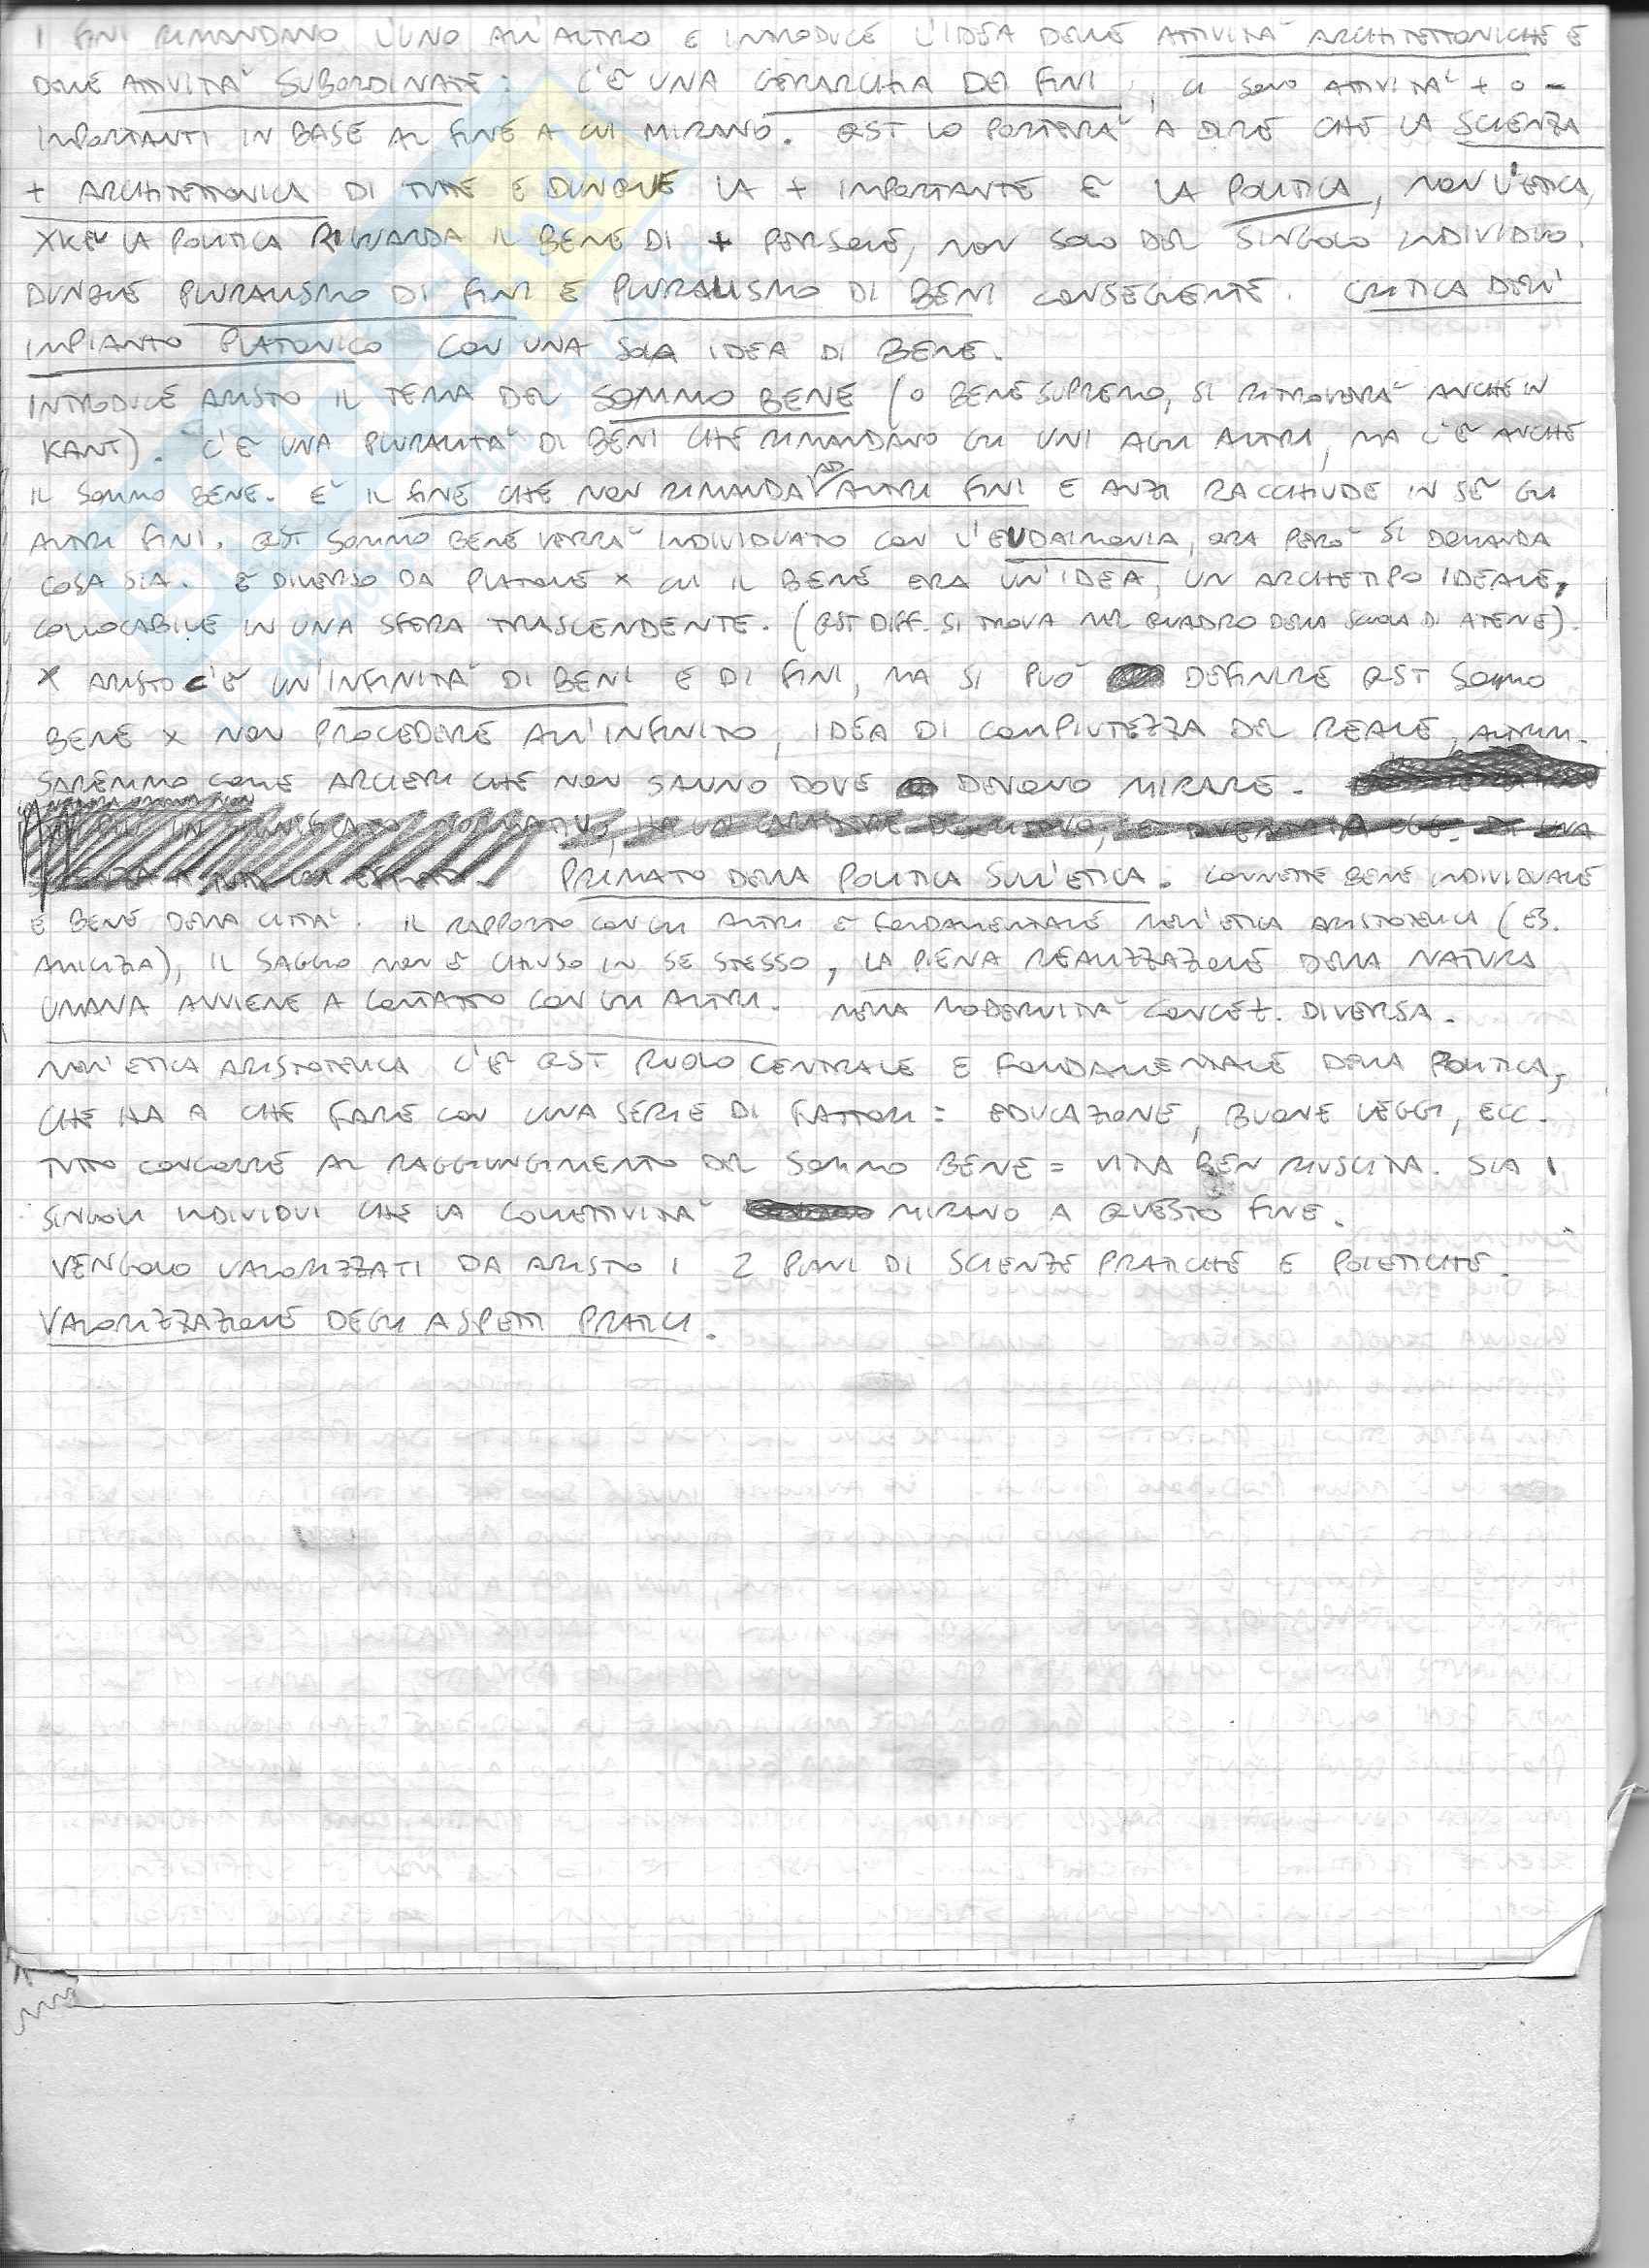 I FINI RIMANDANO L'UNO ALL'ALTRO E INTRODUCE L'IDEA DELLE ATTIVITÀ ARCHITETTONICHE E
DELLE ATTIVITÀ SUBORDINATE. C'È UNA GERARCHIA DEI FINI, CI SONO ATTIVITÀ + O -
IMPORTANTI IN BASE AL FINE A CUI MIRANO. QST LO PORTERÀ A DIRE CHE LA SCIENZA
+ ARCHITETTONICA DI TUTTE E DUNQUE LA + IMPORTANTE È LA POLITICA, NON L'ETICA,
XKÈ LA POLITICA RIGUARDA IL BENE DI + PERSONE, NON SOLO DEL SINGOLO INDIVIDUO.
DUNQUE PLURALISMO DI FINI E PLURALISMO DI BENI CONSEGUENTE. CRITICA DELL'
IMPIANTO PLATONICO CON UNA SOLA IDEA DI BENE.
INTRODUCE ARISTO IL TEMA DEL SOMMO BENE (O BENE SUPREMO, SI RITROVERÀ ANCHE IN
KANT). C'È UNA PLURALITÀ DI BENI CHE RIMANDANO GLI UNI AGLI ALTRI, MA C'È ANCHE
IL SOMMO BENE. È IL FINE CHE NON RIMANDA AD ALTRI FINI E ANZI RACCHIUDE IN SÈ GLI
ALTRI FINI. QST SOMMO BENE VERRÀ INDIVIDUATO CON L'EUDAIMONIA, ORA PERÒ SI DOMANDA
COSA SIA. È DIVERSO DA PLATONE X CUI IL BENE ERA UN'IDEA, UN ARCHETIPO IDEALE,
COLLOCABILE IN UNA SFERA TRASCENDENTE. (QST DIFF. SI TROVA NEL QUADRO DELLA SCUOLA DI ATENE).
X ARISTO C'È UN'INFINITÀ DI BENI E DI FINI, MA SI PUÒ DEFINIRE QST SOMMO
BENE X NON PROCEDERE ALL'INFINITO, IDEA DI COMPIUTEZZA DEL REALE, ALTRIM.
SAREMMO COME ARCIERI CHE NON SANNO DOVE DEVONO MIRARE.
PRIMATO DELLA POLITICA SULL'ETICA. CONNETTE BENE INDIVIDUALE
E BENE DELLA CITTÀ. IL RAPPORTO CON GLI ALTRI È FONDAMENTALE NELL'ETICA ARISTOTELICA (ES.
AMICIZIA), IL SAGGIO NON È CHIUSO IN SE STESSO, LA PIENA REALIZZAZIONE DELLA NATURA
UMANA AVVIENE A CONTATTO CON GLI ALTRI. NELLA MODERNITÀ CONCEZ. DIVERSA.
NELL'ETICA ARISTOTELICA C'È QST RUOLO CENTRALE E FONDAMENTALE DELLA POLITICA,
CHE HA A CHE FARE CON UNA SERIE DI FATTORI: EDUCAZIONE, BUONE LEGGI, ECC.
TUTTO CONCORRE AL RAGGIUNGIMENTO DEL SOMMO BENE = VITA BEN RIUSCITA. SIA I
SINGOLI INDIVIDUI CHE LA COLLETTIVITÀ MIRANO A QUESTO FINE.
VENGONO VALORIZZATI DA ARISTO I 2 PIANI DI SCIENZE PRATICHE E POIETICHE.
VALORIZZAZIONE DEGLI ASPETTI PRATICI.